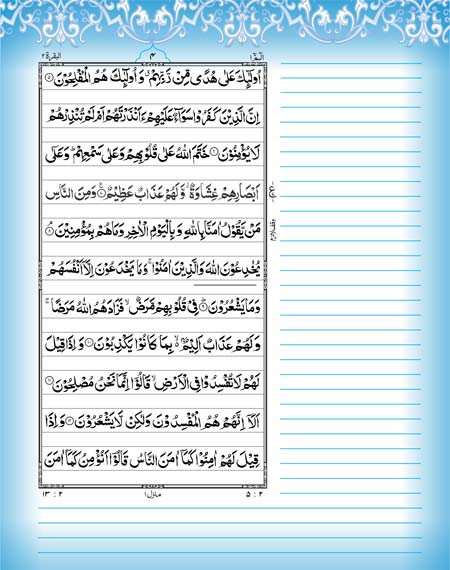 البقرة ٢
٤
الٓمّٓ ١
اُولٰٓئِكَ عَلٰى هُدًى مِّنْ رَّبِّهِمْ ۙ وَ اُولٰٓئِكَ هُمُ الْمُفْلِحُوْنَ ۝۵
اِنَّ الَّذِيْنَ كَفَرُوْا سَوَآءٌ عَلَيْهِمْ ءَاَنْذَرْتَهُمْ اَمْ لَمْ تُنْذِرْهُمْ
لَا يُؤْمِنُوْنَ ۝۶ خَتَمَ اللّٰهُ عَلٰى قُلُوْبِهِمْ وَ عَلٰى سَمْعِهِمْ ؕ وَ عَلٰٓى
اَبْصَارِهِمْ غِشَاوَةٌ ؗ وَّ لَهُمْ عَذَابٌ عَظِيْمٌ ۝۷ وَ مِنَ النَّاسِ
مَنْ يَّقُوْلُ اٰمَنَّا بِاللّٰهِ وَ بِالْيَوْمِ الْاٰخِرِ وَ مَا هُمْ بِمُؤْمِنِيْنَ ۝۸
يُخٰدِعُوْنَ اللّٰهَ وَ الَّذِيْنَ اٰمَنُوْا ۚ وَ مَا يَخْدَعُوْنَ اِلَّاۤ اَنْفُسَهُمْ
وَ مَا يَشْعُرُوْنَ ۝۹ فِيْ قُلُوْبِهِمْ مَّرَضٌ ۙ فَزَادَهُمُ اللّٰهُ مَرَضًا ۚ
وَ لَهُمْ عَذَابٌ اَلِيْمٌۢ ۙ بِمَا كَانُوْا يَكْذِبُوْنَ ۝۱۰ وَ اِذَا قِيْلَ
لَهُمْ لَا تُفْسِدُوْا فِي الْاَرْضِ ۙ قَالُوْۤا اِنَّمَا نَحْنُ مُصْلِحُوْنَ ۝۱۱
اَلَاۤ اِنَّهُمْ هُمُ الْمُفْسِدُوْنَ وَ لٰكِنْ لَّا يَشْعُرُوْنَ ۝۱۲ وَ اِذَا
قِيْلَ لَهُمْ اٰمِنُوْا كَمَاۤ اٰمَنَ النَّاسُ قَالُوْۤا اَنُؤْمِنُ كَمَاۤ اٰمَنَ
وقف لازم
۲ : ۵
منزل ۱
۲ : ۱۳